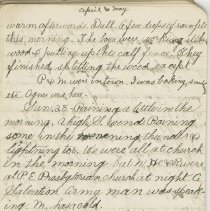 April & May
warm afterwards Dull. A few drops of rain fell
this morning. The boys were
wood & putting up the calf fence. They
finished splitting the wood except
P & M were in town. I was baking
etc Agnes was here.
Sun. 28 Raining a little in the
morning. A high S. wind Raining
some in the morning thunder &
lightning too. We were all at church
in the morning but W, P & R were
at P.E. Presbyterian church at night A
Salvation Army man was speak-
ing M.